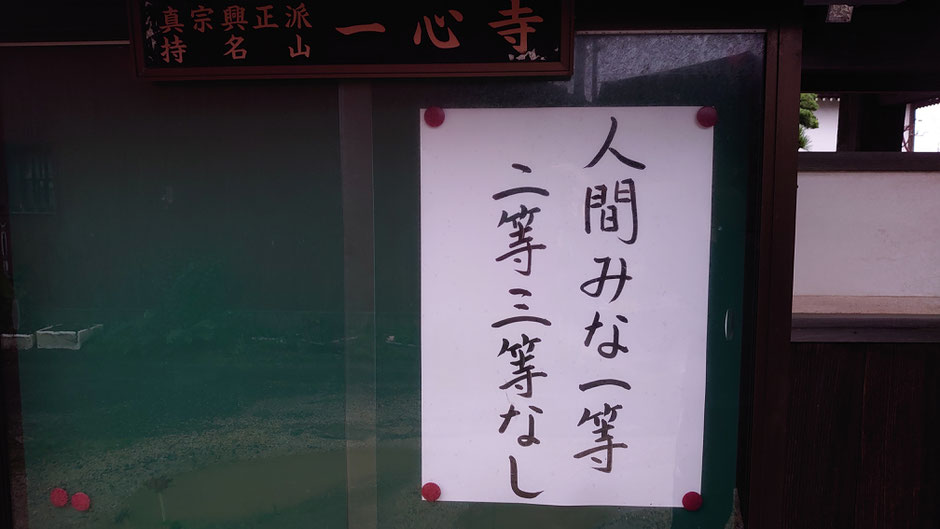 真宗興正派
持名山
一心寺
人間みな一等
二等三等なし